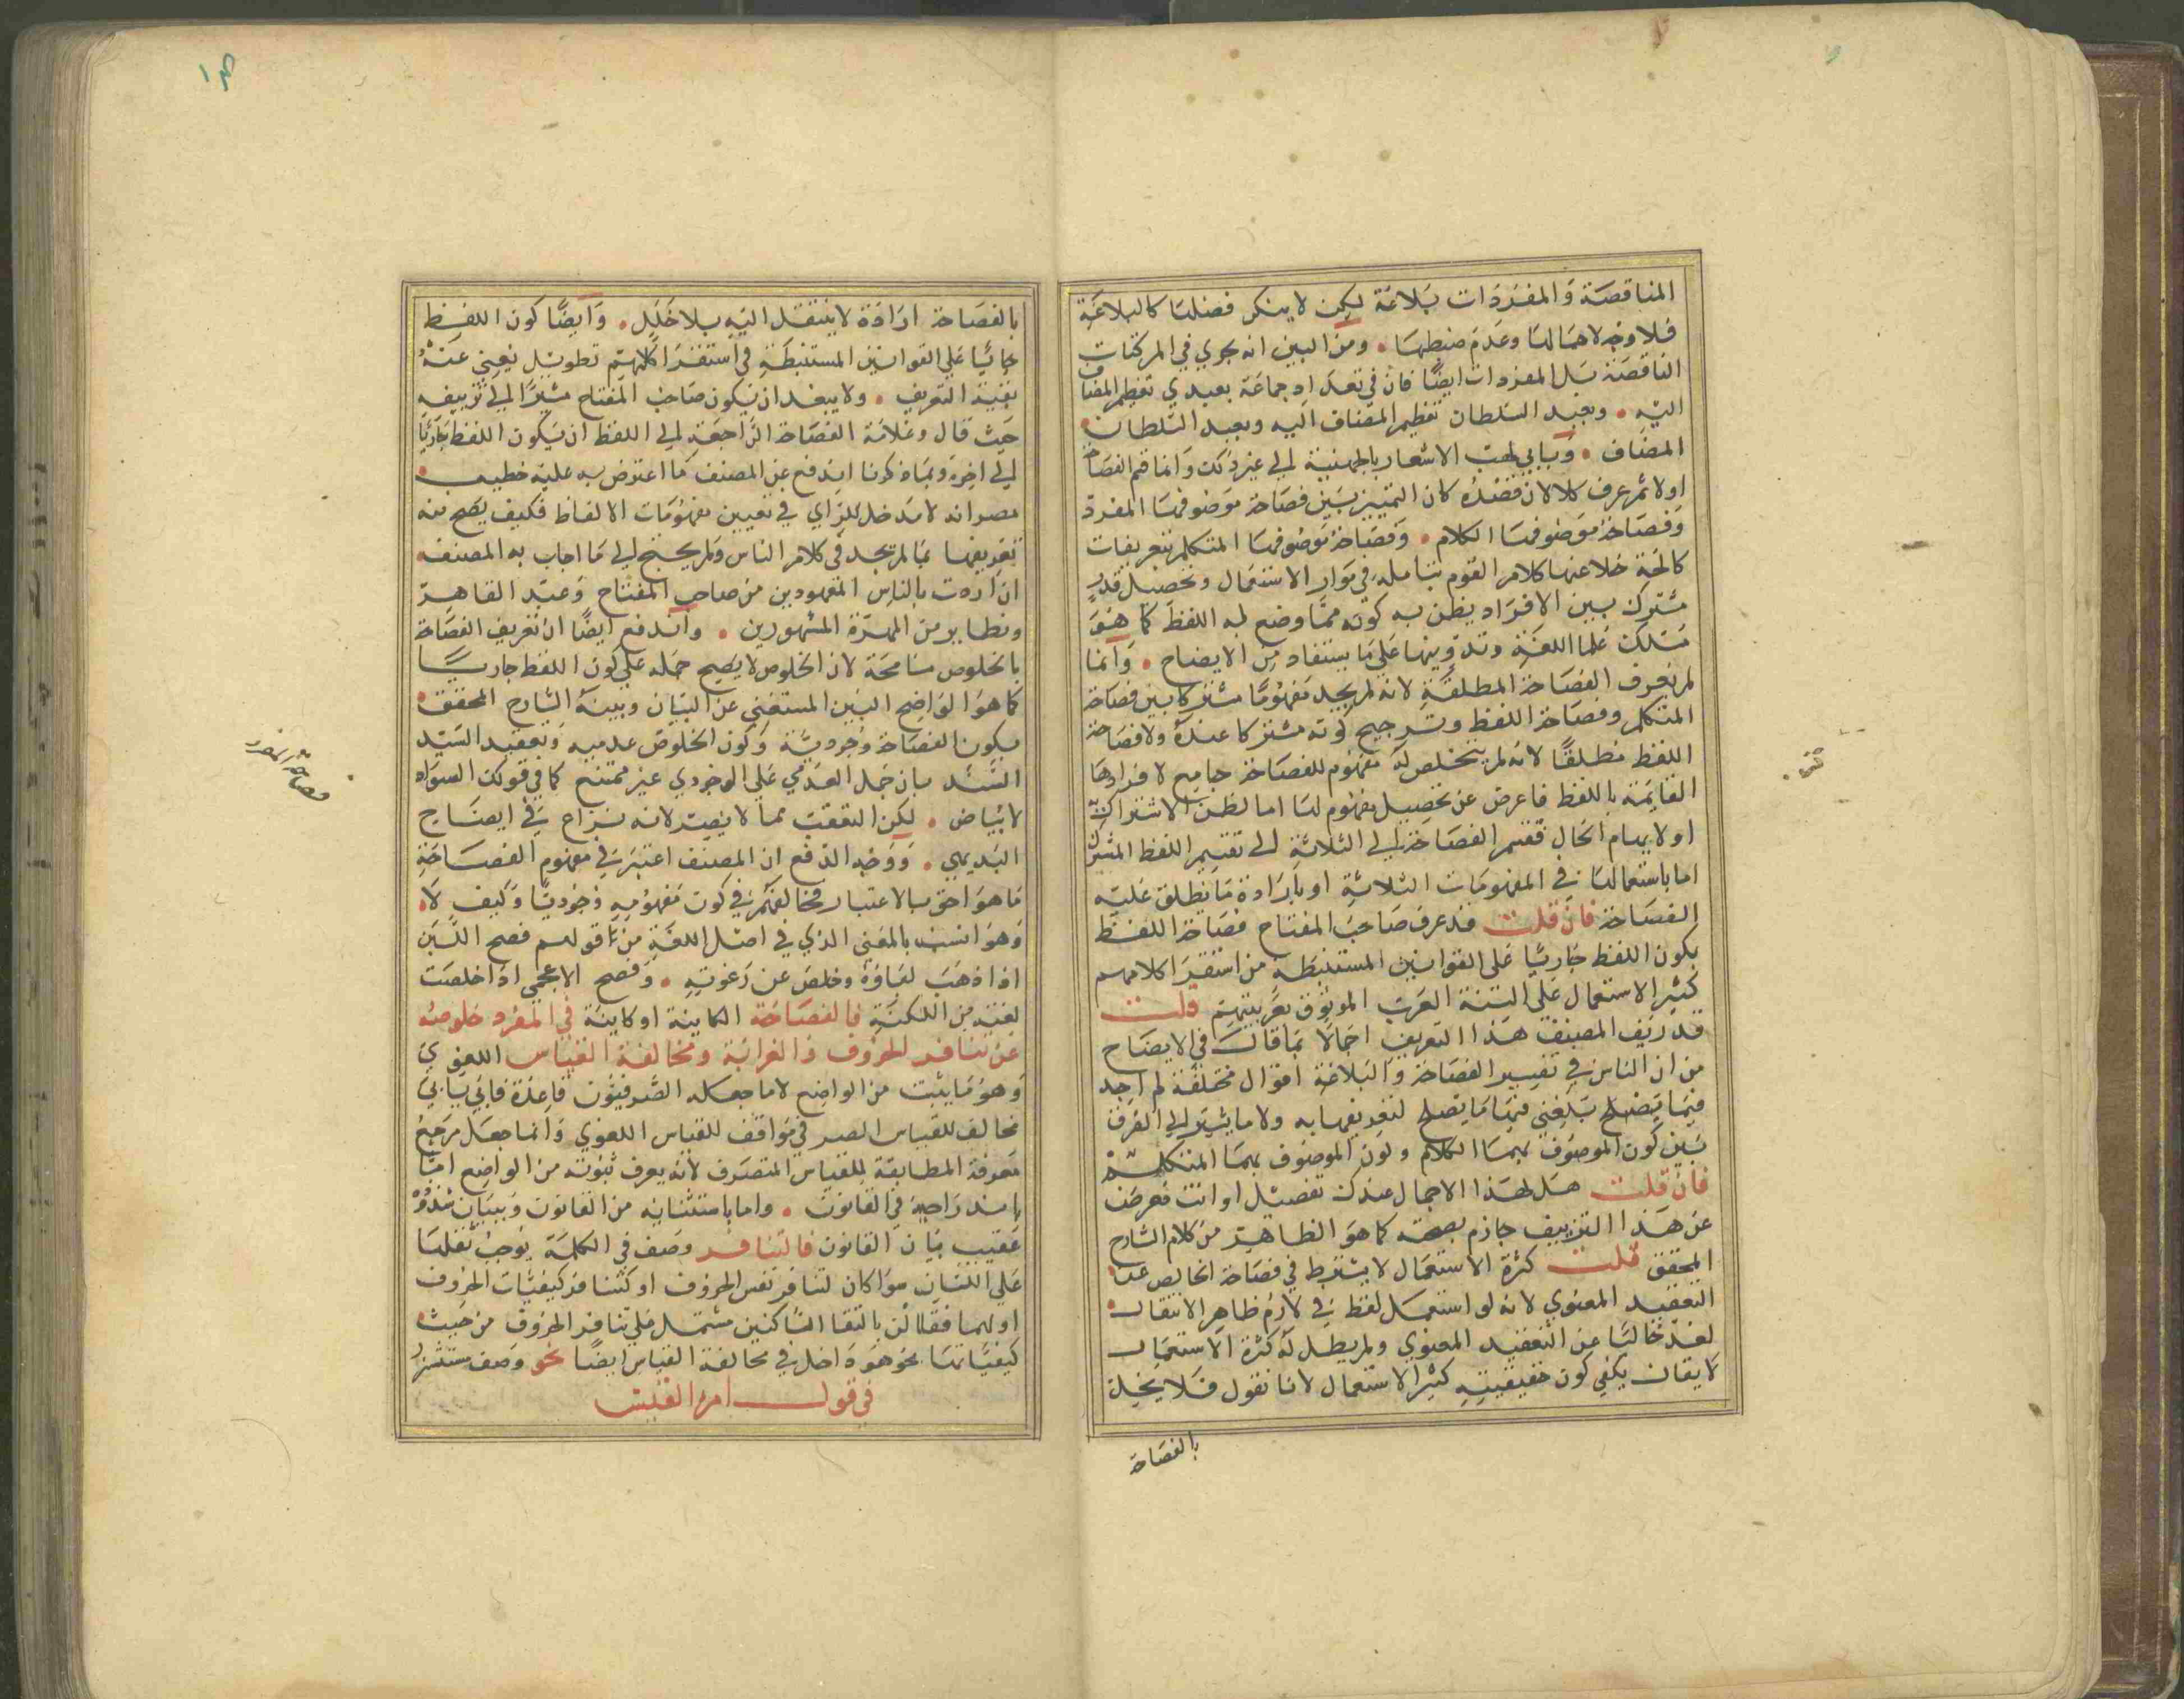 الناقصة والمفردات بلاغة لكن لا ينكر فضلها كالبلاغة
فلا وجه لاحمالها وعدم ضبطها . ومن البين انه يجري في المركبات
الناقصة بل المفردات ايضا فان في تعداد جماعة بعبدي تعظيم المضاف
اليه . وبعبد السلطان تعظيم المضاف اليه وبعبد السلطان
المضاف . وبابي لهب الاشعار بالجهنمية الي غير ذلك وانما قسم الفصاحة
اولا ثم عرف كلا لان قصده كان التمييز بين فصاحة موضوفها المفرد
وفصاحة موضوفها الكلام . وفصاحة موضوفها المتكلم بتعريفات
كالحة خلا عنها كلام القوم بتامله في موارد الاستعمال وتحصيل قدر
مشترك بين الافراد يظن به كونه مما وضع له اللفظ كما هو
مسلك علما اللغة وتدوينها علي ما يستفاد من الايضاح . وانما
لم يعرف الفصاحة المطلقة لانه لم يجد مفهوما مشتركا بين فصاحة
المتكلم وفصاحة اللفظ وترجيح كونه مشتركا عنده ولا فصاحة
اللفظ مطلقا لانه لم يتخلص له مفهوم للفصاحة جامع لافرادها
القايمة باللفظ فاعرض عن تحصيل مفهوم لها اما لظن الاشتراك
او لابهام الحال فقسم الفصاحة الي الثلاثة الي تقسيم اللفظ المشترك
اما باستعمالها في المفهومات الثلاثة او بارادة ما يطلق عليه
الفصاحة فان قلت قد عرف صاحب المفتاح فصاحة اللفظ
بكون اللفظ جاريا علي القوانين المستنبطة من استقرا كلامهم
كثير الاستعمال علي السنة العرب الموثوق بعربيتهم قلت
قد زيف المصنف هذا التعريف اجمالا بما قال في الايضاح
من ان الناس في تفسير الفصاحة والبلاغة اقوال مختلفة لم اجد
فيما بلغني منها ما يصلح لتعريفهما به ولا ما يشير الي الفرق
بين كون الموصوف بهما الكلام وكون الموصوف بهما المتكلم
فان قلت هل لهذا الاجمال عندك تفصيل او انت معرض
عن هذا التزييف جازم بصحته كما هو الظاهر من كلام الشارح
المحقق قلت كثرة الاستعمال لا يشترط في فصاحة الخالص عن
التعقيد المعنوي لانه لو استعمل لفظ في لازم ظاهر الانتقال
لعد خاليا عن التعقيد المعنوي ولم يطل له كثرة الاستعمال
لا يقال يكفي كون حقيقيته كثير الاستعمال لانا نقول فلا يخل
بالفصاحة
بالفصاحة ارادة لا ينتقل اليه بلا خلل . وايضا كون اللفظ
جاريا علي القوانين المستنبطة في استقرا كلامهم تطويل يغني عنه
بقية التعريف . ولا يبعد ان يكون صاحب المفتاح مشيرا الي تزييفه
حيث قال وعلامة الفصاحة الراجعة الي اللفظ ان يكون اللفظ جاريا
الي اخره وبما ذكرنا اندفع عن المصنف ما اعترض به عليه خطيب
مصر انه لا مدخل للراي في تعيين مفهومات الالفاظ فكيف يصح منه
تعريفها بما لم يجد في كلام الناس ولم يحتج الي ما اجاب به المصنف
ان اردت بالناس المعهودين من صاحب المفتاح وعبد القاهر
ونظاير من المهرة المشهورين . واندفع ايضا ان تعريف الفصاحة
بالخلوص مسامحة لان الخلوص لا يصح حمله علي كون اللفظ جاريا
كما هو الواضح البين المستغني عن البيان وبينه الشارح المحقق
بكون الفصاحة وجودية وكون الخلوص عدميه وبعقبد السيد
السند بان حمل العدمي علي الوجودي غير ممتنع كما في قولك السواد
لا بياض . لكن التعقب مما لا يصير لانه نزاع في ايضاح
البديهي . ووجه الدفع ان المصنف اعتبر في مفهوم الفصاحة
ما هو احق بالاعتبار فخالفهم في كون مفهومه وجوديا وكيف لا
وهو انسب بالمعني الذي في اصل اللغة من قولهم فصح اللبن
اذا ذهب لباؤه وخلص عن رغوته . وفصح الاعجمي اذا خلصت
لغته من اللكنة فالفصاحة الكاينة او كاينة في المفرد خلوصه
عن تنافر الحروف والغرابة ومخالفة القياس اللغوي
وهو ما يثبت من الواضع لا ما جعله الصرفيون قاعدة فابي يابي
مخالف للقياس الصرفي موافق للقياس اللغوي وانما جعل مرجع
معرفة المطابقة للقياس المتصرف لانه يعرف ثبوته من الواضع اما
باندراجه في القانون . واما باستثنايه من القانون وببيان شذوذه
عقيب بيان القانون فالتنافر وصف في الكلمة يوجب ثقلها
علي اللسان سوا كان لتنافر نفس الحروف او كتنافر كيفيات الحروف
اولهما فقلان بالتقا الساكنين مشتمل علي تنافر الحروف من حيث
كيفياتها نحو هو داخل في مخالفة القياس ايضا نحو وصف مستشزر
في قول امرء القيس
فصاحة المفرد